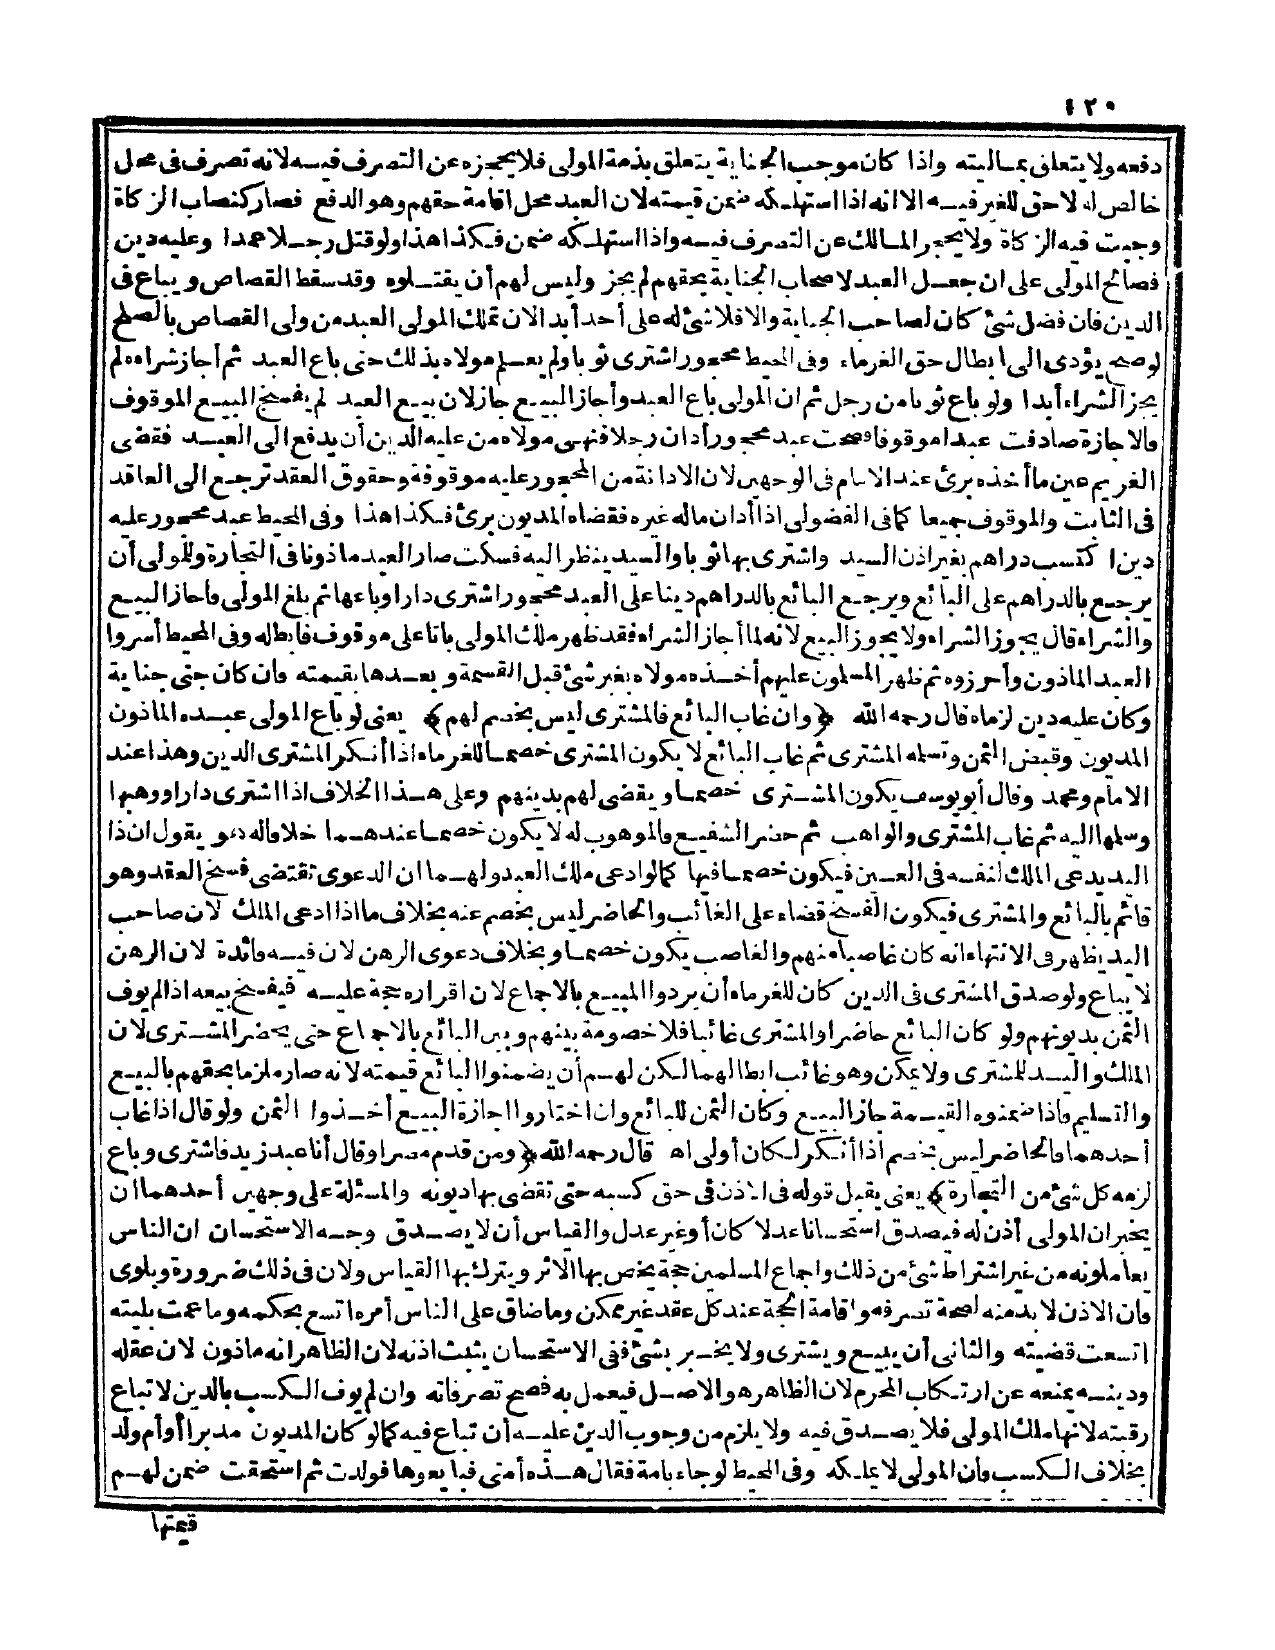 ١٢٠
دفعه ولا يتعلق بماليته واذا كان موجب الجناية يتعلق بذمة المولى فلا يحجزه عن التصرف فيه لانه تصرف فى محل
خالص له لا حق للغير فيه الا انه اذا استهلكه ضمن قيمته لان العبد محل اقامة حقهم وهو الدفع فصار كنصاب الزكاة
وجبت فيه الزكاة ولا يحجر المالك عن التصرف فيه واذا استهلكه ضمن فكذا هذا ولو قتل رجلا عمدا وعليه دين
فصالح المولى على ان جعل العبد لاصحاب الجناية بحقهم لم يجز وليس لهم أن يقتلوه وقد سقط القصاص ويباع فى
الدين فان فضل شئ كان لصاحب الجناية والا فلا شئ له على أحد أبدا لان تملك المولى العبد من ولى القصاص بالصلح
لو صح يؤدى الى ابطال حق الغرماء وفى المحيط محجور اشترى ثوبا ولم يعلم مولاه بذلك حتى باع العبد ثم أجاز شراءه لم
يجز الشراء أبدا ولو باع ثوبا من رجل ثم ان المولى باع العبد وأجاز البيع جاز لان بيع العبد لم يفسخ البيع الموقوف
فالاجازة صادفت عبدا موقوفا فصحت عبد محجور أدان رجلا فنهى مولاه من عليه الدين أن يدفع الى العبد فقضى
الغريم عين ما أخذه برئ عند الامام فى الوجهين لان الادانة من المحجور عليه موقوفة وحقوق العقد ترجع الى العاقد
فى الثابت والموقوف جميعا كما فى الفضولى اذا أدان مال غيره فقضاه المديون برئ فكذا هذا وفى المحيط عبد محجور عليه
دين اكتسب دراهم بغير اذن السيد واشترى بها ثوبا والسيد ينظر اليه فسكت صار العبد ماذونا فى التجارة وللمولى أن
يرجع بالدراهم على البائع ويرجع البائع بالدراهم دينا على العبد محجور اشترى دارا وباعها ثم بلغ المولى فأجاز البيع
والشراء قال يجوز الشراء ولا يجوز البيع لانه لما أجاز الشراء فقد ظهر ملك المولى باتا على موقوف فابطله وفى المحيط أسروا
العبد الماذون وأحرزوه ثم ظهر المسلمون عليهم أخذه مولاه بغير شئ قبل القسمة وبعدها بقيمته فان كان جنى جناية
وكان عليه دين لزماه قال رحمه الله ﴿وان غاب البائع فالمشترى ليس بخصم لهم﴾ يعنى لو باع المولى عبده الماذون
المديون وقبض الثمن وتسلمه المشترى ثم غاب البائع لا يكون المشترى خصما للغرماء اذا أنكر المشترى الدين وهذا عند
الامام ومحمد وقال أبو يوسف يكون المشترى خصما ويقضى لهم بدينهم وعلى هذا الخلاف اذا اشترى دارا ووهبها
وسلمها اليه ثم غاب المشترى والواهب ثم حضر الشفيع فالموهوب له لا يكون خصما عندهما خلافا له هو يقول ان ذا
اليد يدعى الملك لنفسه فى العين فيكون خصما فيها كما لو ادعى ملك العبد ولهما ان الدعوى تقتضى فسخ العقد وهو
قائم بالبائع والمشترى فيكون الفسخ قضاء على الغائب والحاضر ليس بخصم عنه بخلاف ما اذا ادعى الملك لان صاحب
اليد يظهر فى الانتهاء انه كان غاصبا منهم والغاصب يكون خصما وبخلاف دعوى الرهن لان فيه فائدة لان الرهن
لا يباع ولو صدق المشترى فى الدين كان للغرماء أن يردوا المبيع بالاجماع لان اقراره حجة عليه فيفسخ بيعه اذا لم يوف
الثمن بديونهم ولو كان البائع حاضرا والمشترى غائبا فلا خصومة بينهم وبين البائع بالاجماع حتى يحضر المشترى لان
الملك واليد للمشترى ولا يمكن وهو غائب ابطالهما لكن لهم أن يضمنوا البائع قيمته لانه صار ملزما بحقهم بالبيع
والتسليم فاذا ضمنوه القيمة جاز البيع وكان الثمن للبائع وان اختاروا اجازة البيع أخذوا الثمن ولو قال اذا غاب
أحدهما فالحاضر ليس بخصم اذا أنكر لكان أولى اه قال رحمه الله ﴿ومن قدم مصرا وقال أنا عبد زيد فاشترى وباع
لزمه كل شئ من التجارة﴾ يعنى يقبل قوله فى الاذن فى حق كسبه حتى تقضى بها ديونه والمسئلة على وجهين أحدهما أن
يخبر ان المولى أذن له فيصدق استحسانا عدلا كان أو غير عدل والقياس أن لا يصدق وجه الاستحسان ان الناس
يعاملونه من غير اشتراط شئ من ذلك واجماع المسلمين حجة يخص بها الاثر ويترك بها القياس ولان فى ذلك ضرورة وبلوى
فان الاذن لا بد منه لصحة تصرفه واقامة الحجة عند كل عقد غير ممكن وما ضاق على الناس أمره اتسع بحكمه وما عمت بليته
اتسعت قضيته والثانى أن يبيع ويشترى ولا يخبر بشئ ففى الاستحسان يثبت اذنه لان الظاهر انه ماذون لان عقله
ودينه يمنعه عن ارتكاب المحرم لان الظاهر هو الاصل فيعمل به فصح تصرفاته وان لم يوف الكسب بالدين لا تباع
رقبته لانها ملك المولى فلا يصدق فيه ولا يلزم من وجوب الدين عليه أن تباع فيه كما لو كان المديون مدبرا أو أم ولد
بخلاف الكسب فان المولى لا يملكه وفى المحيط لو جاء بامة فقال هذه أمتى فبايعوها فولدت ثم استحقت ضمن لهم
قيمتها